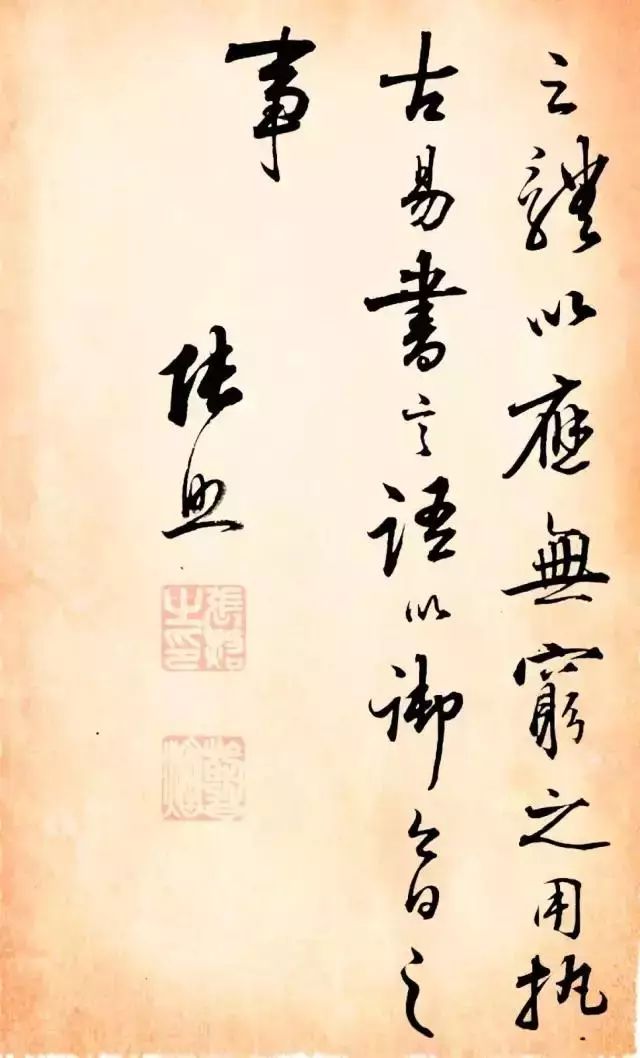 之體以應無窮之用執
古易書言語以御今日之
事
張照
張照之印